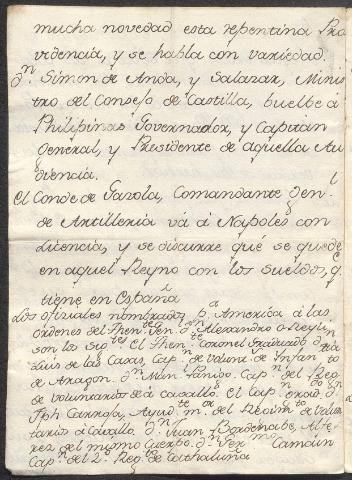 mucha novedad esta repentina Pro
videncia, y se habla con variedad.
Dn. Simon de Anda, y Salazar, Minis
tro del Consejo de Castilla, buelbe á
Philipinas Governador, y Capitan
General, y Presidente de aquella Au
diencia.
El Conde de Gazola, Comandante Genl
de Artilleria vá á Napoles con
Licencia, y se discurre que se quede
en aquel Reyno con los sueldos, q.e
tiene en España
Los oficiales nombrados pa. America á las
ordenes del Thente. Genl. Dn. Alexandro O Reyly
son los sigtes. El Thente. Coronel Graduado Dn.
Luis de las Casas, Capn. de Volunts. de Infanta
de Aragon. Dn. Capn. del Reg
de voluntarios á cavallo. El Cap.
Jph Ayudte. mr. del Regimto. de volun
tarios á Cavallo. Dn. Juan Alfe
rez del mismo Cuerpo. Dn.
Capn. del 2º. Regto. de Cathaluña